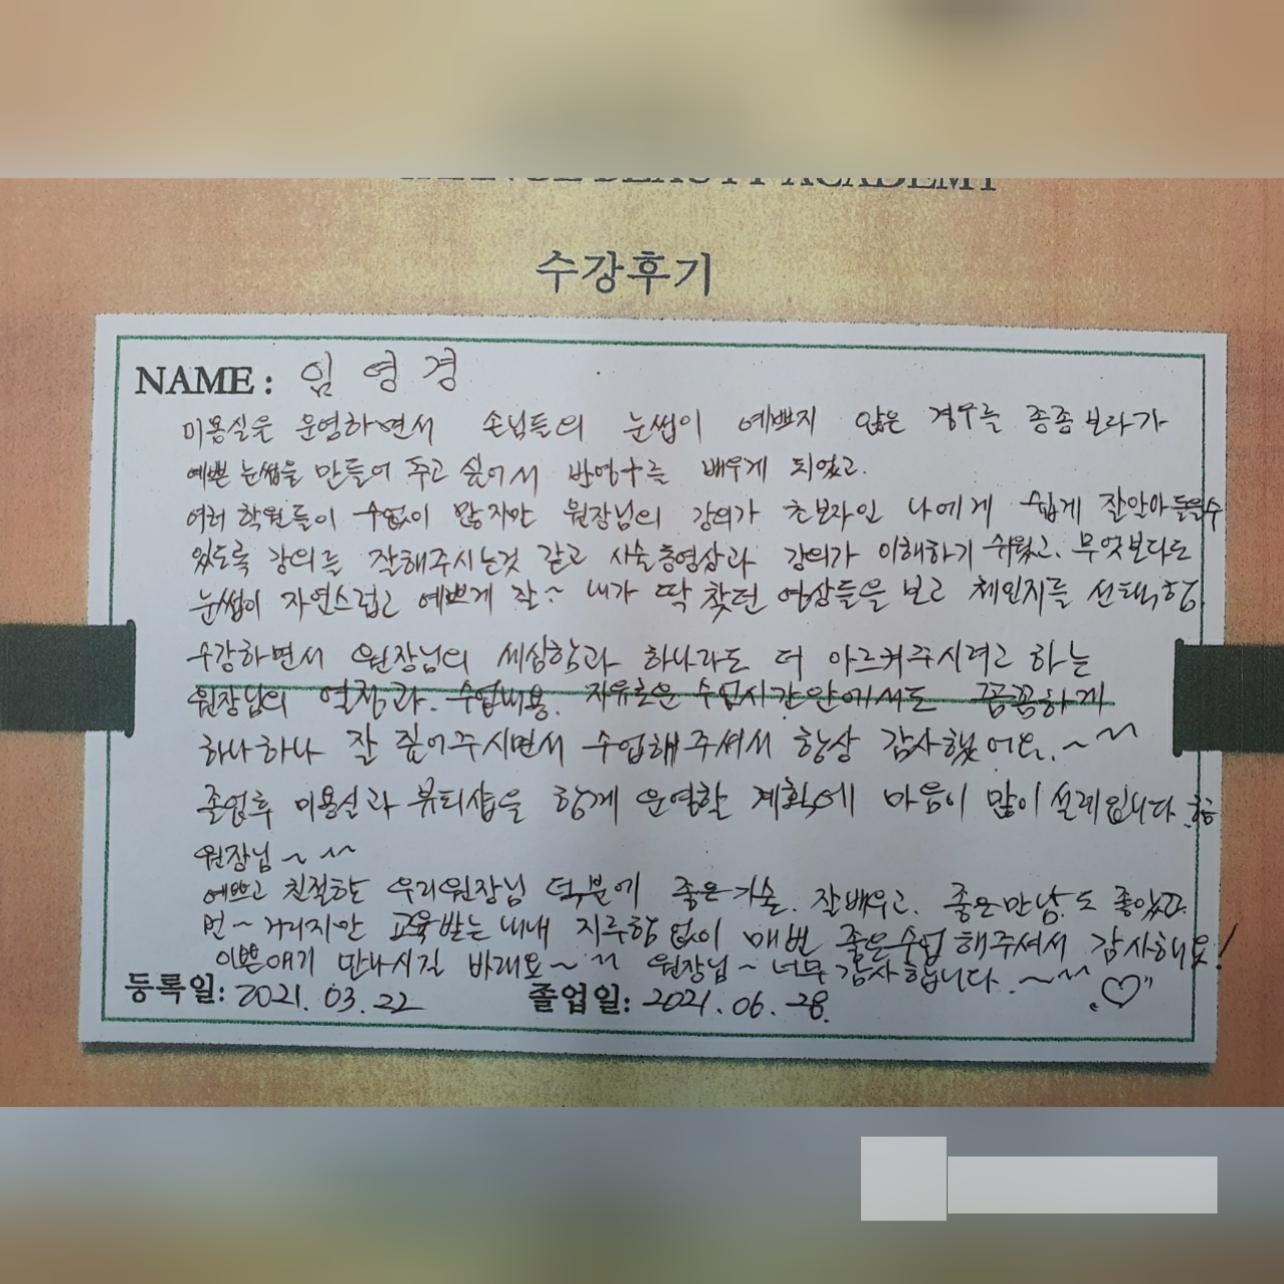 BEAUTY ACADEMY
수강후기
NAME : 임영경
미용실은 운영하면서 손님들의 눈썹이 예쁘지 않은 경우를 종종 보다가
예쁜 눈썹을 만들어 주고 싶어서 반영구를 배우게 되었고.
여러 학원들이 수없이 많지만 원장님의 강의가 초보자인 나에게 쉽게 잘알아들을수
있도록 강의를 잘해주시는것 같고 시술동영상과 강의가 이해하기 쉬웠고. 무엇보다도
눈썹이 자연스럽고 예쁘게 잘~ 내가 딱 찾던 영상들을 보고 체인지를 선택함
수강하면서 원장님의 세심함과 하나라도 더 아르켜주시려고 하는
원장님의 열정과. 수업비용. 자유로운 수업시간안에서도 꼼꼼하게
하나하나 잘 짚어주시면서 수업해주셔서 항상 감사했어요.~^^
졸업후 미용실과 뷰티샵을 함께 운영할 계획에 마음이 많이 설레입니다
원장님~^^
예쁘고 친절한 우리원장님 덕분에 좋은기술. 잘배우고. 좋은만남도 좋았고.
먼~거리지만 교육받는 내내 지루함 없이 매번 좋은수업 해주셔서 감사해요!
이쁜애기 만나시길 바래요~^^ 원장님~너무 감사합니다.~^^ ♡
등록일: 2021. 03. 22 졸업일: 2021. 06. 28.